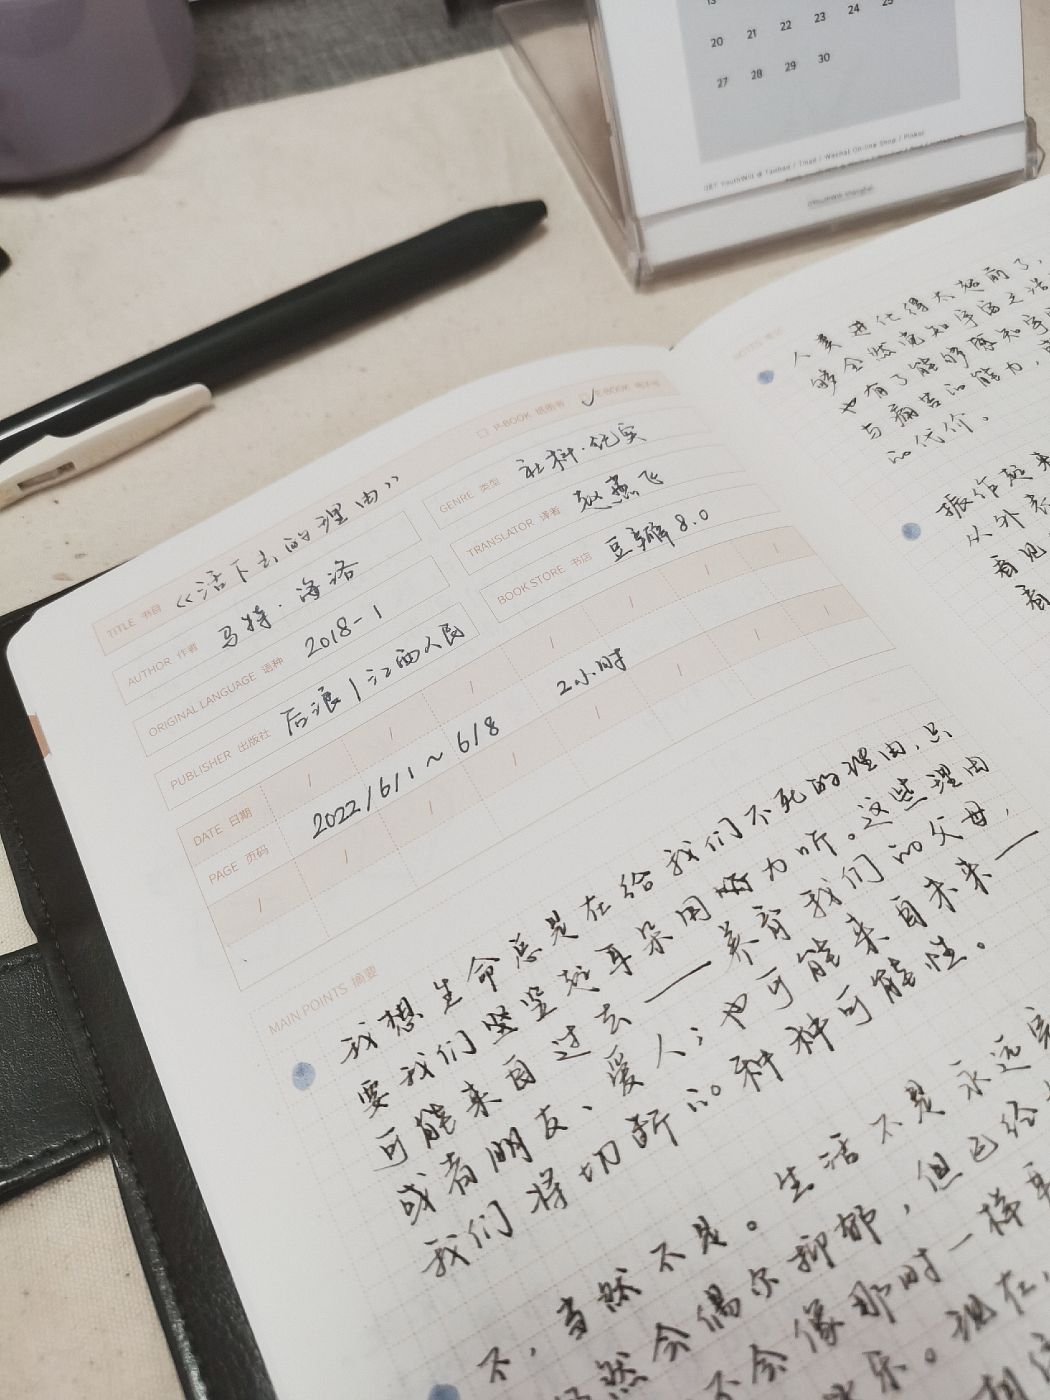 20 21 22 23 24 25
27 28 29 30
P-BOOK 纸质书 ✓ E-BOOK 电子书
TITLE 书目 《活下去的理由》
AUTHOR 作者 马特·海洛
GENRE 类型 社科·纪实
ORIGINAL LANGUAGE 语种 2018-1
TRANSLATOR 译者 赵燕飞
PUBLISHER 出版社 后浪/江西人民
BOOK STORE 书店 豆瓣8.0
DATE 日期
2022/6/1~6/8 2小时
PAGE 页码
MAIN POINTS 摘要
我想生命总是在给我们不死的理由,只
要我们坚竖起耳朵用力听。这些理由
可能来自过去——养育我们的父母,
或者朋友、爱人;也可能来自未来—
我们将切断的种种可能性。
不,当然不是。生活不是永远完
然会偶尔抑郁,但已给
不会像那时一样
乐。现在,
人类进化得太超前了,
与痛苦的能力,
的代价。
振作起来
从外表
看见
看